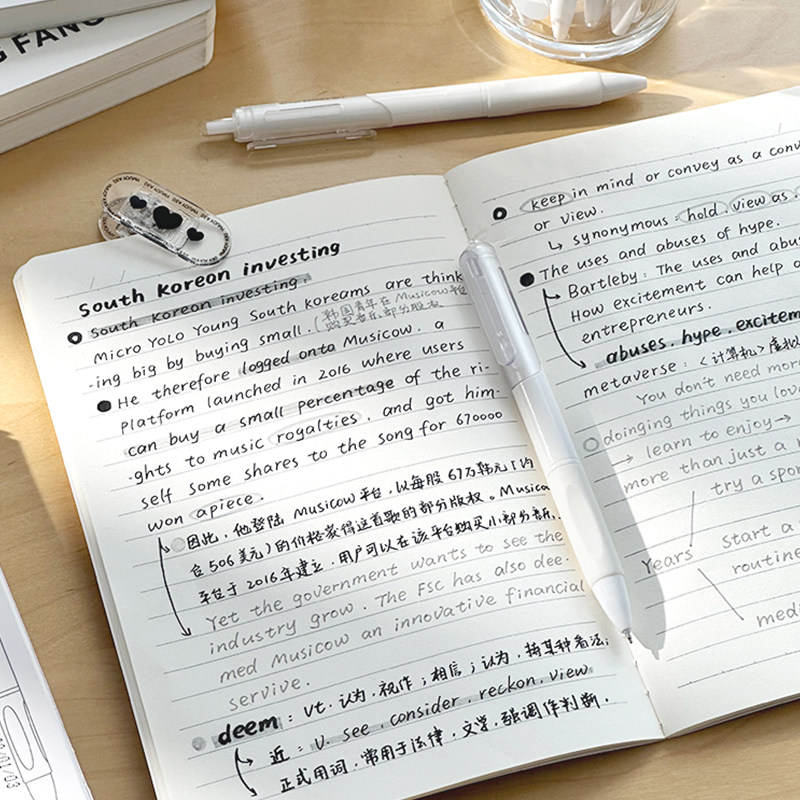 G FANG
South korean investing
South korean investing.
Micro YOLO Young South koreams are think
-ing big by buying small. (韩国青年在Musicow平台
购买音乐部分股权
He therefore logged onto Musicow, a
platform launched in 2016 where users
can buy a small percentage of the ri-
-ghts to music rogalties, and got him-
self some shares to the song for 670000
won apiece.
因此,他登陆 Musicow平台,以每股67万韩元(约
合506美元)的价格获得这首歌的部分版权。Musicow
平台于2016年建立,用户可以在该平台购买小部分音乐
Yet the government wants to see the
industry grow. The FSC has also dee-
med Musicow an innovative financial
servive.
deem : vt. 认为,视作;相信;认为,将某种看法;
近:v. see, consider, reckon, view
正式用词,常用于法律,文学,强调作判断.
keep in mind or convey as a conv
or view.
↳ synonymous hold, view as,
The uses and abuses of hype.
Bartleby: The uses and abu
How excitement can help a
entrepreneurs.
abuses, hype, excitem
metaverse: <计算机>虚拟
You don't need more
doinging things you lov
→ learn to enjoy→
more than just a
try a spor
Years
Start a
routine
medi
2/01/03